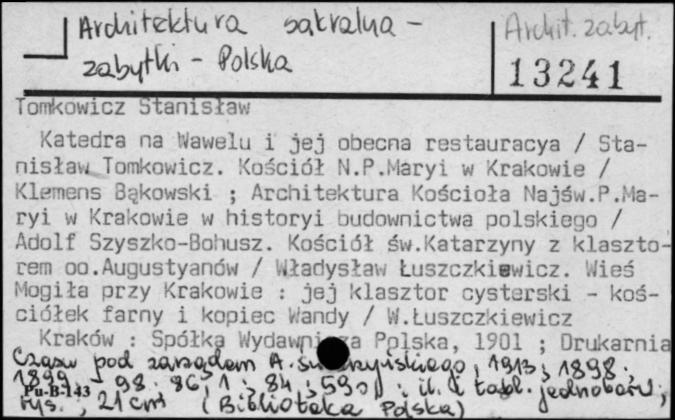 Architektura sakralna -
zabytki - Polska
Archit. zabyt.
13241
Tomkowicz Stanisław
Katedra na Wawelu i jej obecna restauracya / Sta-
nisław Tomkowicz. Kościół N.P.Maryi w Krakowie /
Klemens Bąkowski ; Architektura Kościoła Najśw.P.Ma-
ryi w Krakowie w historyi budownictwa polskiego /
Adolf Szyszko-Bohusz. Kościół św.Katarzyny z klaszto-
rem oo.Augustyanów / Władysław Łuszczkiewicz. Wieś
Mogiła przy Krakowie : jej klasztor cysterski - koś-
ciółek farny i kopiec Wandy / W.Łuszczkiewicz
Kraków : Spółka Wydawnicza Polska, 1901 ; Drukarnia
Czasu pod zarządem A. 1913 ; 1898.
1899 - 98. 86, 1 ; 84 ; 59 : il. i tabl. jednobarw ;
Pu-B-143
rys. , 21 cm (Biblioteka Polska)